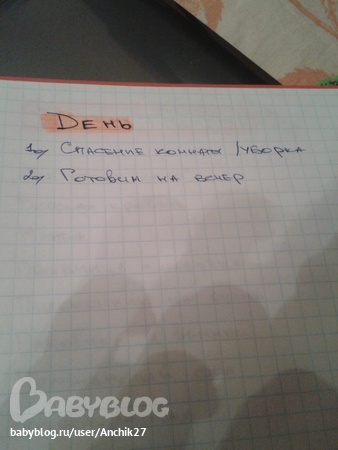 День
1) Спасение комнаты /уборка
2) Готовим на вечер
BABYBLOG
babyblog.ru/user/Anchik27